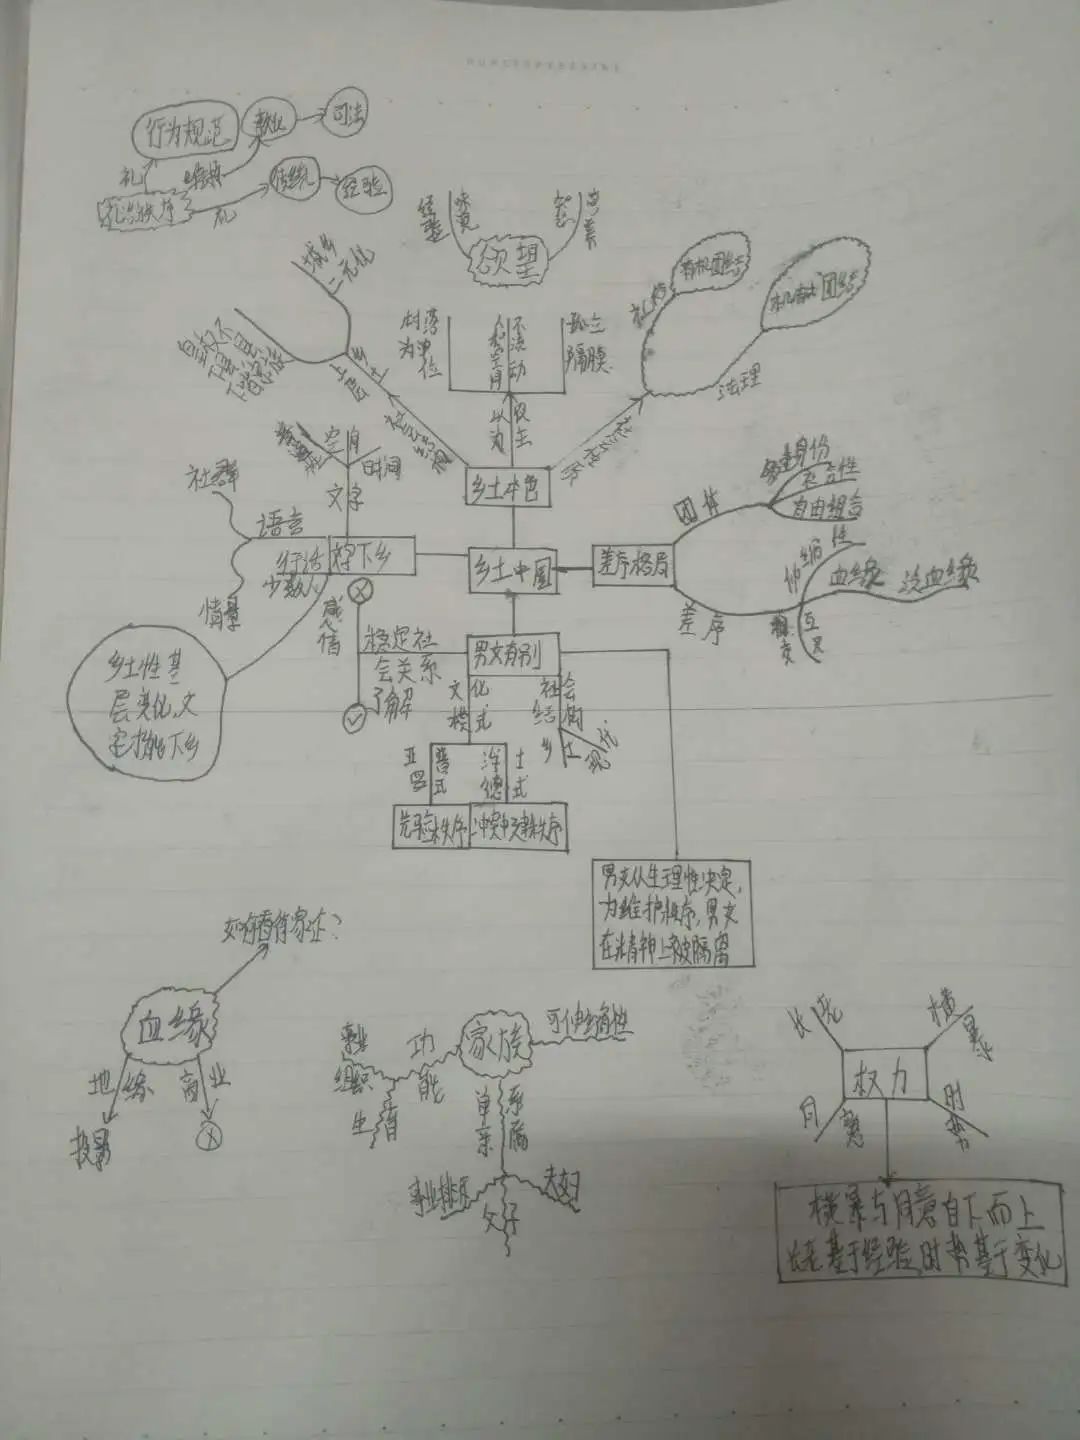 行为规范
司法
礼
传统
经验
礼
经验
欲望
城乡
二元化
村落
为单位
不流动
孤立
隔膜
礼俗
有机团结
法理
乡土
社会结构
以农为生
乡土本色
空间
时间
文字
社群
语言
行话
少数人
情景
文字下乡
乡土中国
差序格局
团体
身份
自由组合
差序
伸缩性
血缘
泛血缘
感情
稳定社
会关系
了解
男女有别
文化模式
社会结构
乡土
现代
乡土性基
层变化,文
字才能下乡
先验秩序
冲突中建秩序
男女从生理性决定,
为维护秩序,男女
在精神上被隔离
血缘
地缘
商业
投影
家族
可伸缩性
功能
事业
组织
生育
单系亲属
事业排斥
父子
夫妇
权力
长老
横暴
同意
时势
横暴与同意自下而上
长老基于经验,时势基于变化